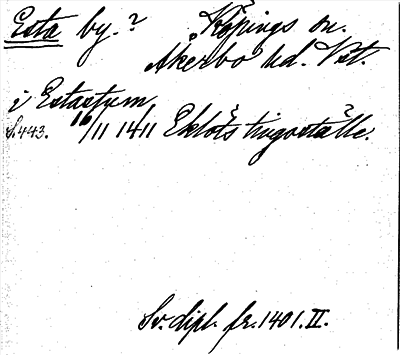 Esta by.? Köpings sn.
Åkerbo hd. Vst.
i Estastum
S. 443. 16/11 1411 Eklöts tingsställe.
Sv. dipl. fr. 1401. II.